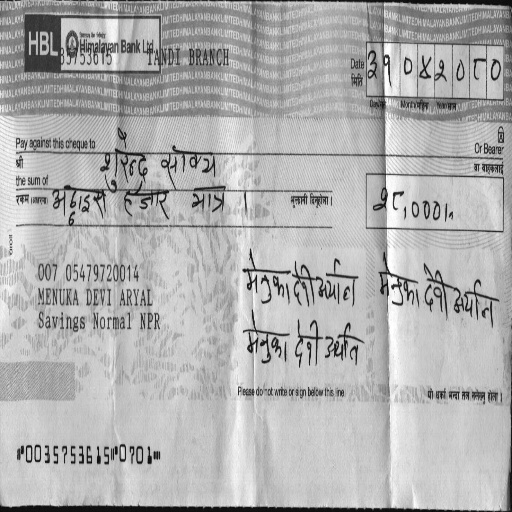 HBL Himalayan Bank Ltd.
35753615 TANDI BRANCH
Date मिति ३१ ०४ २०८०
Pay against this cheque to
Or Bearer
श्री सुरेन्द्र वा वाहकलाई
the sum of
रकम (अक्षरमा) अठ्ठाइस हजार मात्र । भुक्तानी दिनुहोला । २८,०००।-
007 05479720014
MENUKA DEVI ARYAL
Savings Normal NPR
मेनुका देवी अर्याल मेनुका देवी अर्याल
मेनुका देवी अर्याल
Please do not write or sign below this line. यो धर्का भन्दा तल नलेख्नु होला ।
⑈0035753615⑈0701⑈